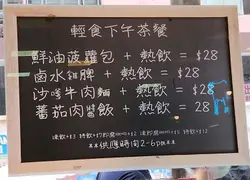 輕食下午茶餐
鮮油菠蘿包 + 熱飲 = $28
鹵水雞髀 + 熱飲 = $28
沙嗲牛肉麵 + 熱飲 = $28
蕃茄肉醬飯 + 熱飲 = 28
凍飲+$3
**供應時間2-6pm**